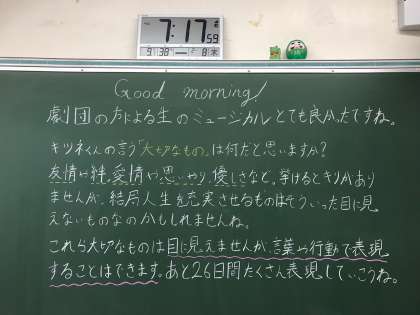 7:17 59
Good morning!
劇団の方による生のミュージカルとても良かったですね。
キツネくんの言う「大切なもの」は何だと思いますか?
友情や絆、愛情や思いやり、優しさなど。挙げるときりがあり
ませんが、結局人生を充実させるものはそういった目に見
えないものなのかもしれませんね。
これら大切なものは目に見えませんが、言葉や行動で表現
することはできます。あと26日間たくさん表現していこうね。